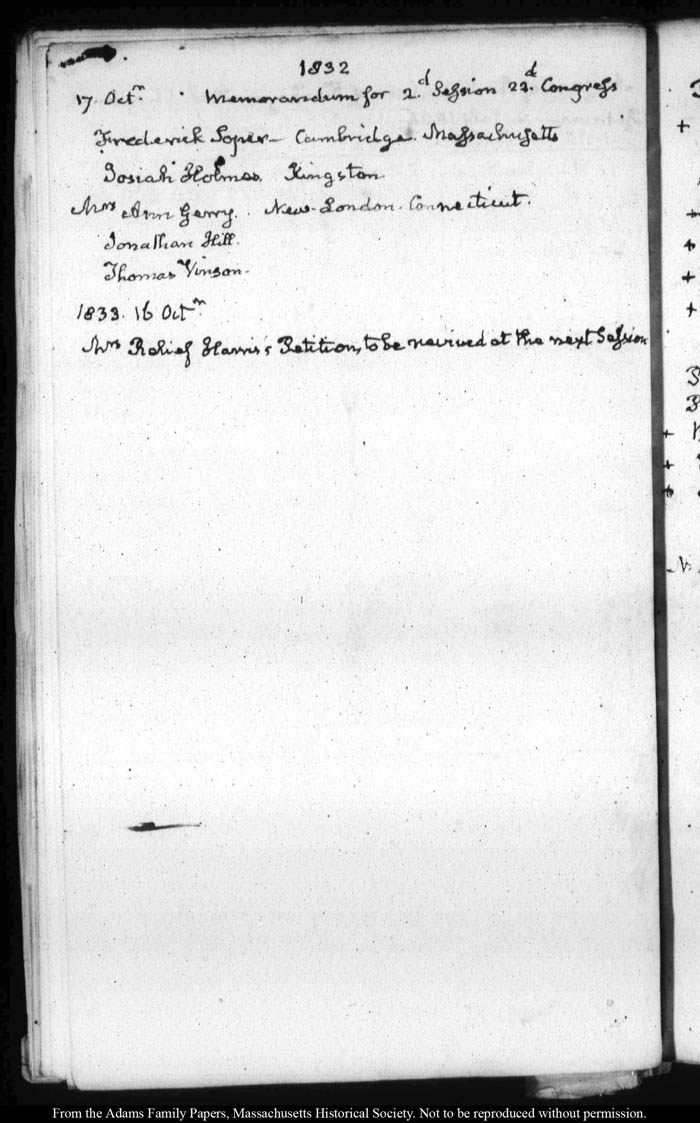 1832
17. Octr. Memorandum for 2.d Session 22.d Congress
Frederick Soper - Cambridge. Massachusetts
Josiah Holmes. Kingston.
Mrs Ann Gerry. New-London. Connecticut.
Jonathan Hill.
Thomas Vinson.
1833. 16 Octr.
Mrs Relief Harris's Petition, to be revived at the next Session
From the Adams Family Papers, Massachusetts Historical Society. Not to be reproduced without permission.